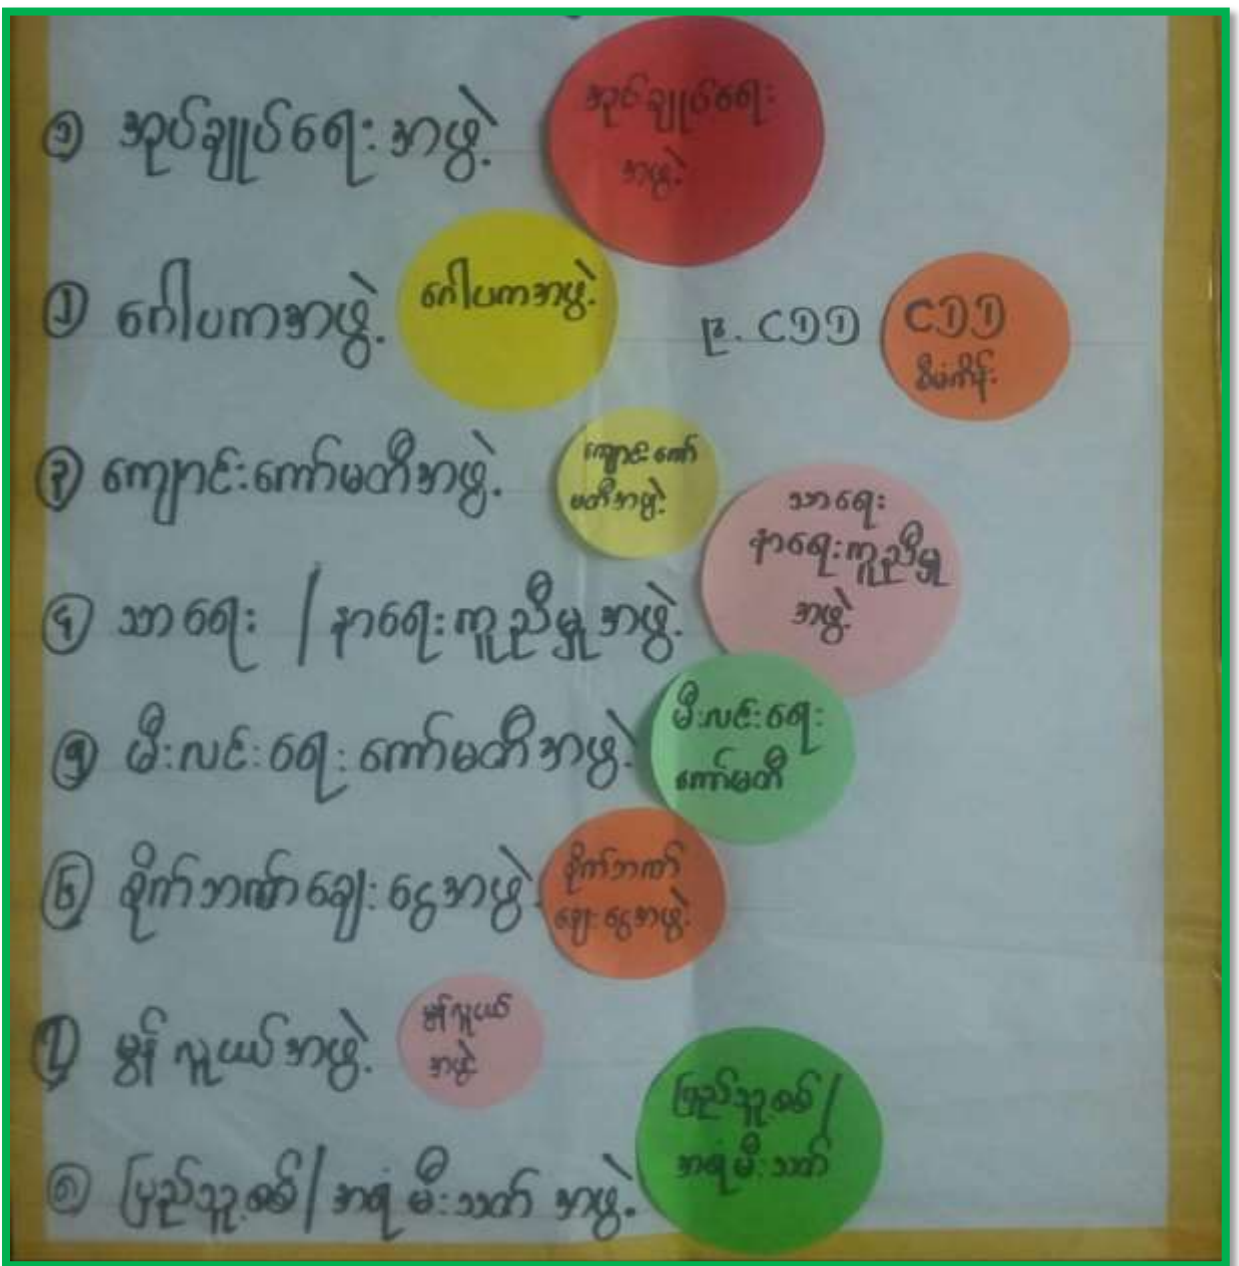 ၁ အုပ်ချုပ်ရေးအဖွဲ့
အုပ်ချုပ်ရေး
အဖွဲ့
၂ ဂေါပကအဖွဲ့
ဂေါပကအဖွဲ့
၃ ကျောင်းကော်မတီအဖွဲ့
ကျောင်းကော်
မတီအဖွဲ့
၄ သာရေး / နာရေးကူညီမှုအဖွဲ့
သာရေး
နာရေးကူညီမှု
အဖွဲ့
၅ မီးလင်းရေးကော်မတီအဖွဲ့
မီးလင်းရေး
ကော်မတီ
၆ စိုက်ဘဏ်ချေးငွေအဖွဲ့
စိုက်ဘဏ်
ချေးငွေအဖွဲ့
၇ မွန်လူငယ်အဖွဲ့
မွန်လူငယ်
အဖွဲ့
၈ ပြည်သူ့စစ်/ အရံမီးသတ် အဖွဲ့
ပြည်သူ့စစ်/
အရံမီးသတ်
၉. CDD
CDD
စီမံကိန်း